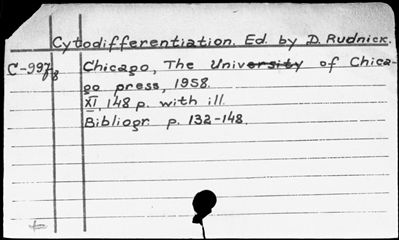 Cytodifferentiation. Ed. by D. Rudnick.
C-997/8 Chicago, The University of Chica-
go press, 1958.
XI, 148 p. with ill.
Bibliogr. p. 132-148.